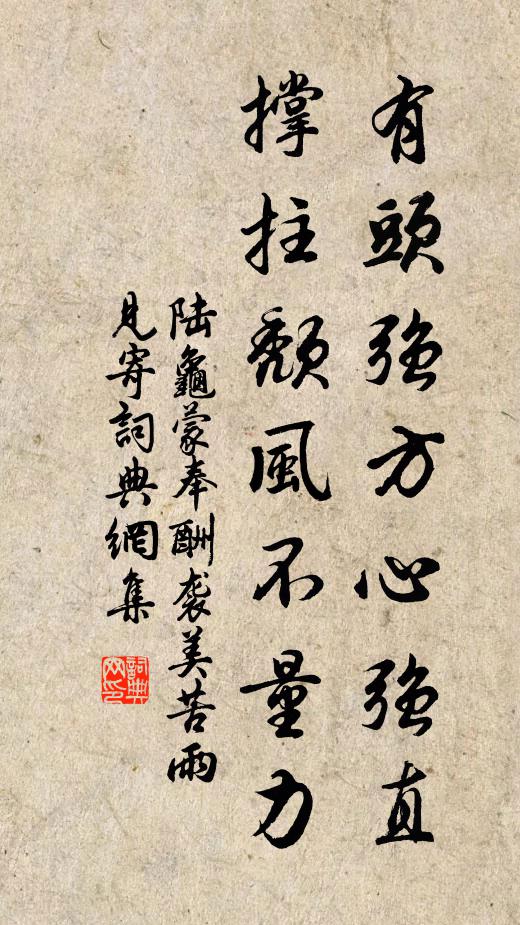 有頭強方心強直
撐拄頹風不量力
陆龜蒙奉酬袭美苦雨
見寄詞典網集